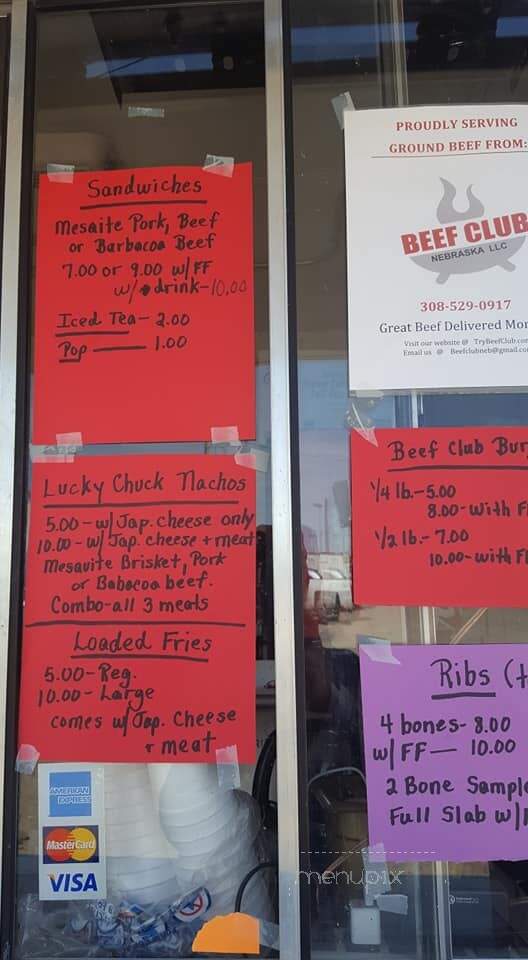 Sandwiches
Mesaite Pork, Beef
or Barbacoa Beef
7.00 or 9.00 w/FF
w/ drink-10,00
Iced Tea- 2.00
Pop — 1.00
Lucky Chuck Nachos
5.00-w/Jap. cheese only
10.00-w/Jap. cheese + meat
Mesauite Brisket, Pork
or Babacoa beef.
Combo-all 3 meats
Loaded Fries
5.00-Reg.
10.00-Large
comes w/Jap. Cheese
+ meat
AMERICAN
EXPRESS
MasterCard
VISA
PROUDLY SERVING
GROUND BEEF FROM:
BEEF CLUB
NEBRASKA LLC
308-529-0917
Great Beef Delivered Mor
Visit our website @ TryBeefClub.com
Email us @ Beefclubneb@gmail.co
Beef Club Bur
1/4 lb.-5.00
8.00-with F
1/2 lb.- 7.00
10.00-with F
Ribs (
4 bones- 8.00
w/FF— 10.00
2 Bone Sample
Full Slab w/
menupix